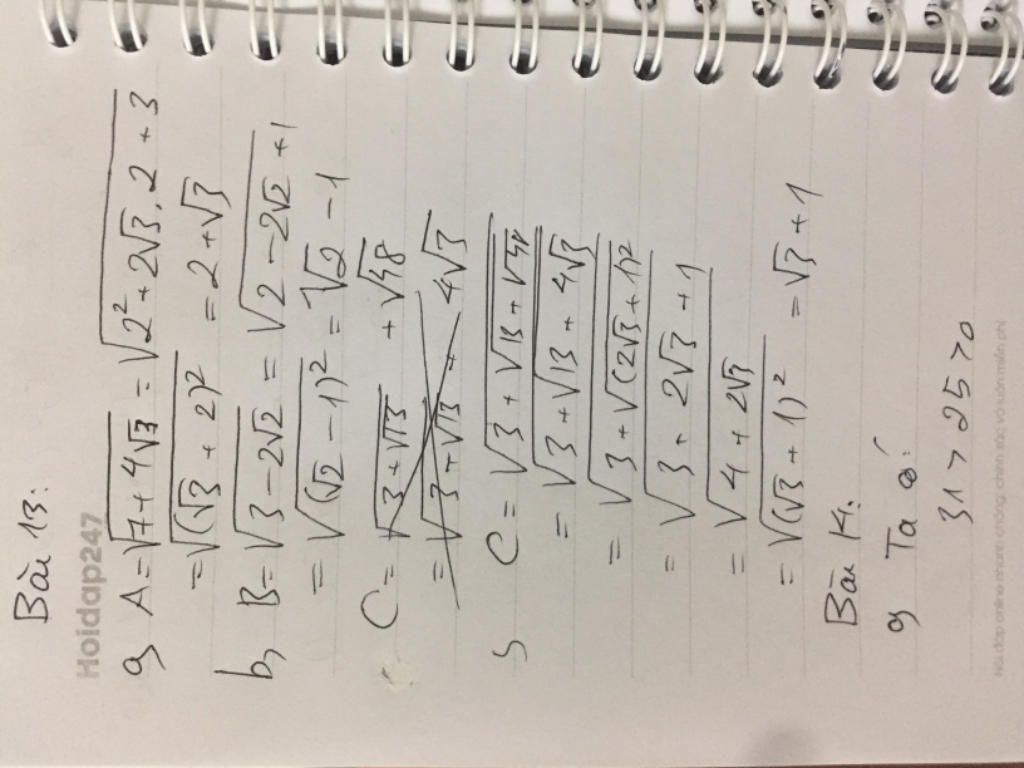 Bài 13:
Hoidap247
a, A = √(7 + 4√3) = √(2² + 2√3.2 + 3)
= √((√3 + 2)²) = 2 + √3
b, B = √(3 - 2√2) = √(2 - 2√2 + 1)
= √((√2 - 1)²) = √2 - 1
C = √(3 + √13) + √48
= √(3 + √13) + 4√3
C = √(3 + √(13 + √48))
= √(3 + √(13 + 4√3))
= √(3 + √((2√3 + 1)²))
= √(3 + 2√3 + 1)
= √(4 + 2√3)
= √((√3 + 1)²) = √3 + 1
Bài 14:
a, Ta có:
31 > 25 > 0
Hỏi đáp online nhanh chóng, chính xác và luôn miễn phí